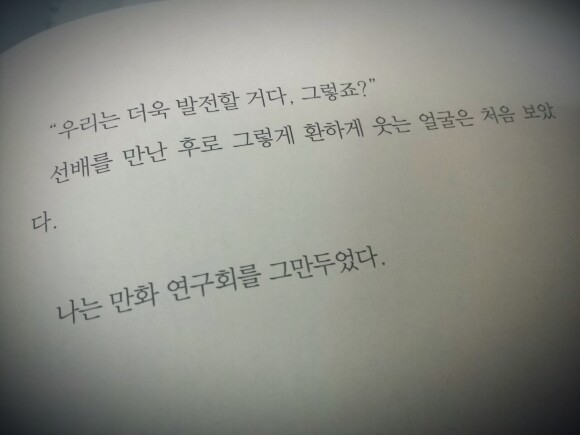 “우리는 더욱 발전할 거다, 그렇죠?”
선배를 만난 후로 그렇게 환하게 웃는 얼굴은 처음 보았
다.
나는 만화 연구회를 그만두었다.